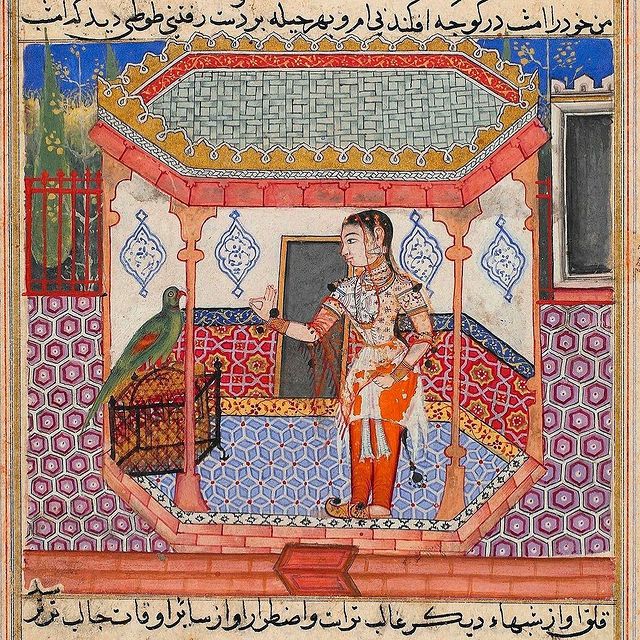 من خود را امشب در کوچه افکندنی ام و بهر حیله بر دست رفتنی طوطی دید که امشب
قلق او از شبهاء دیگر غالب تر است و اضطرار او از سایر اوقات جالب تر